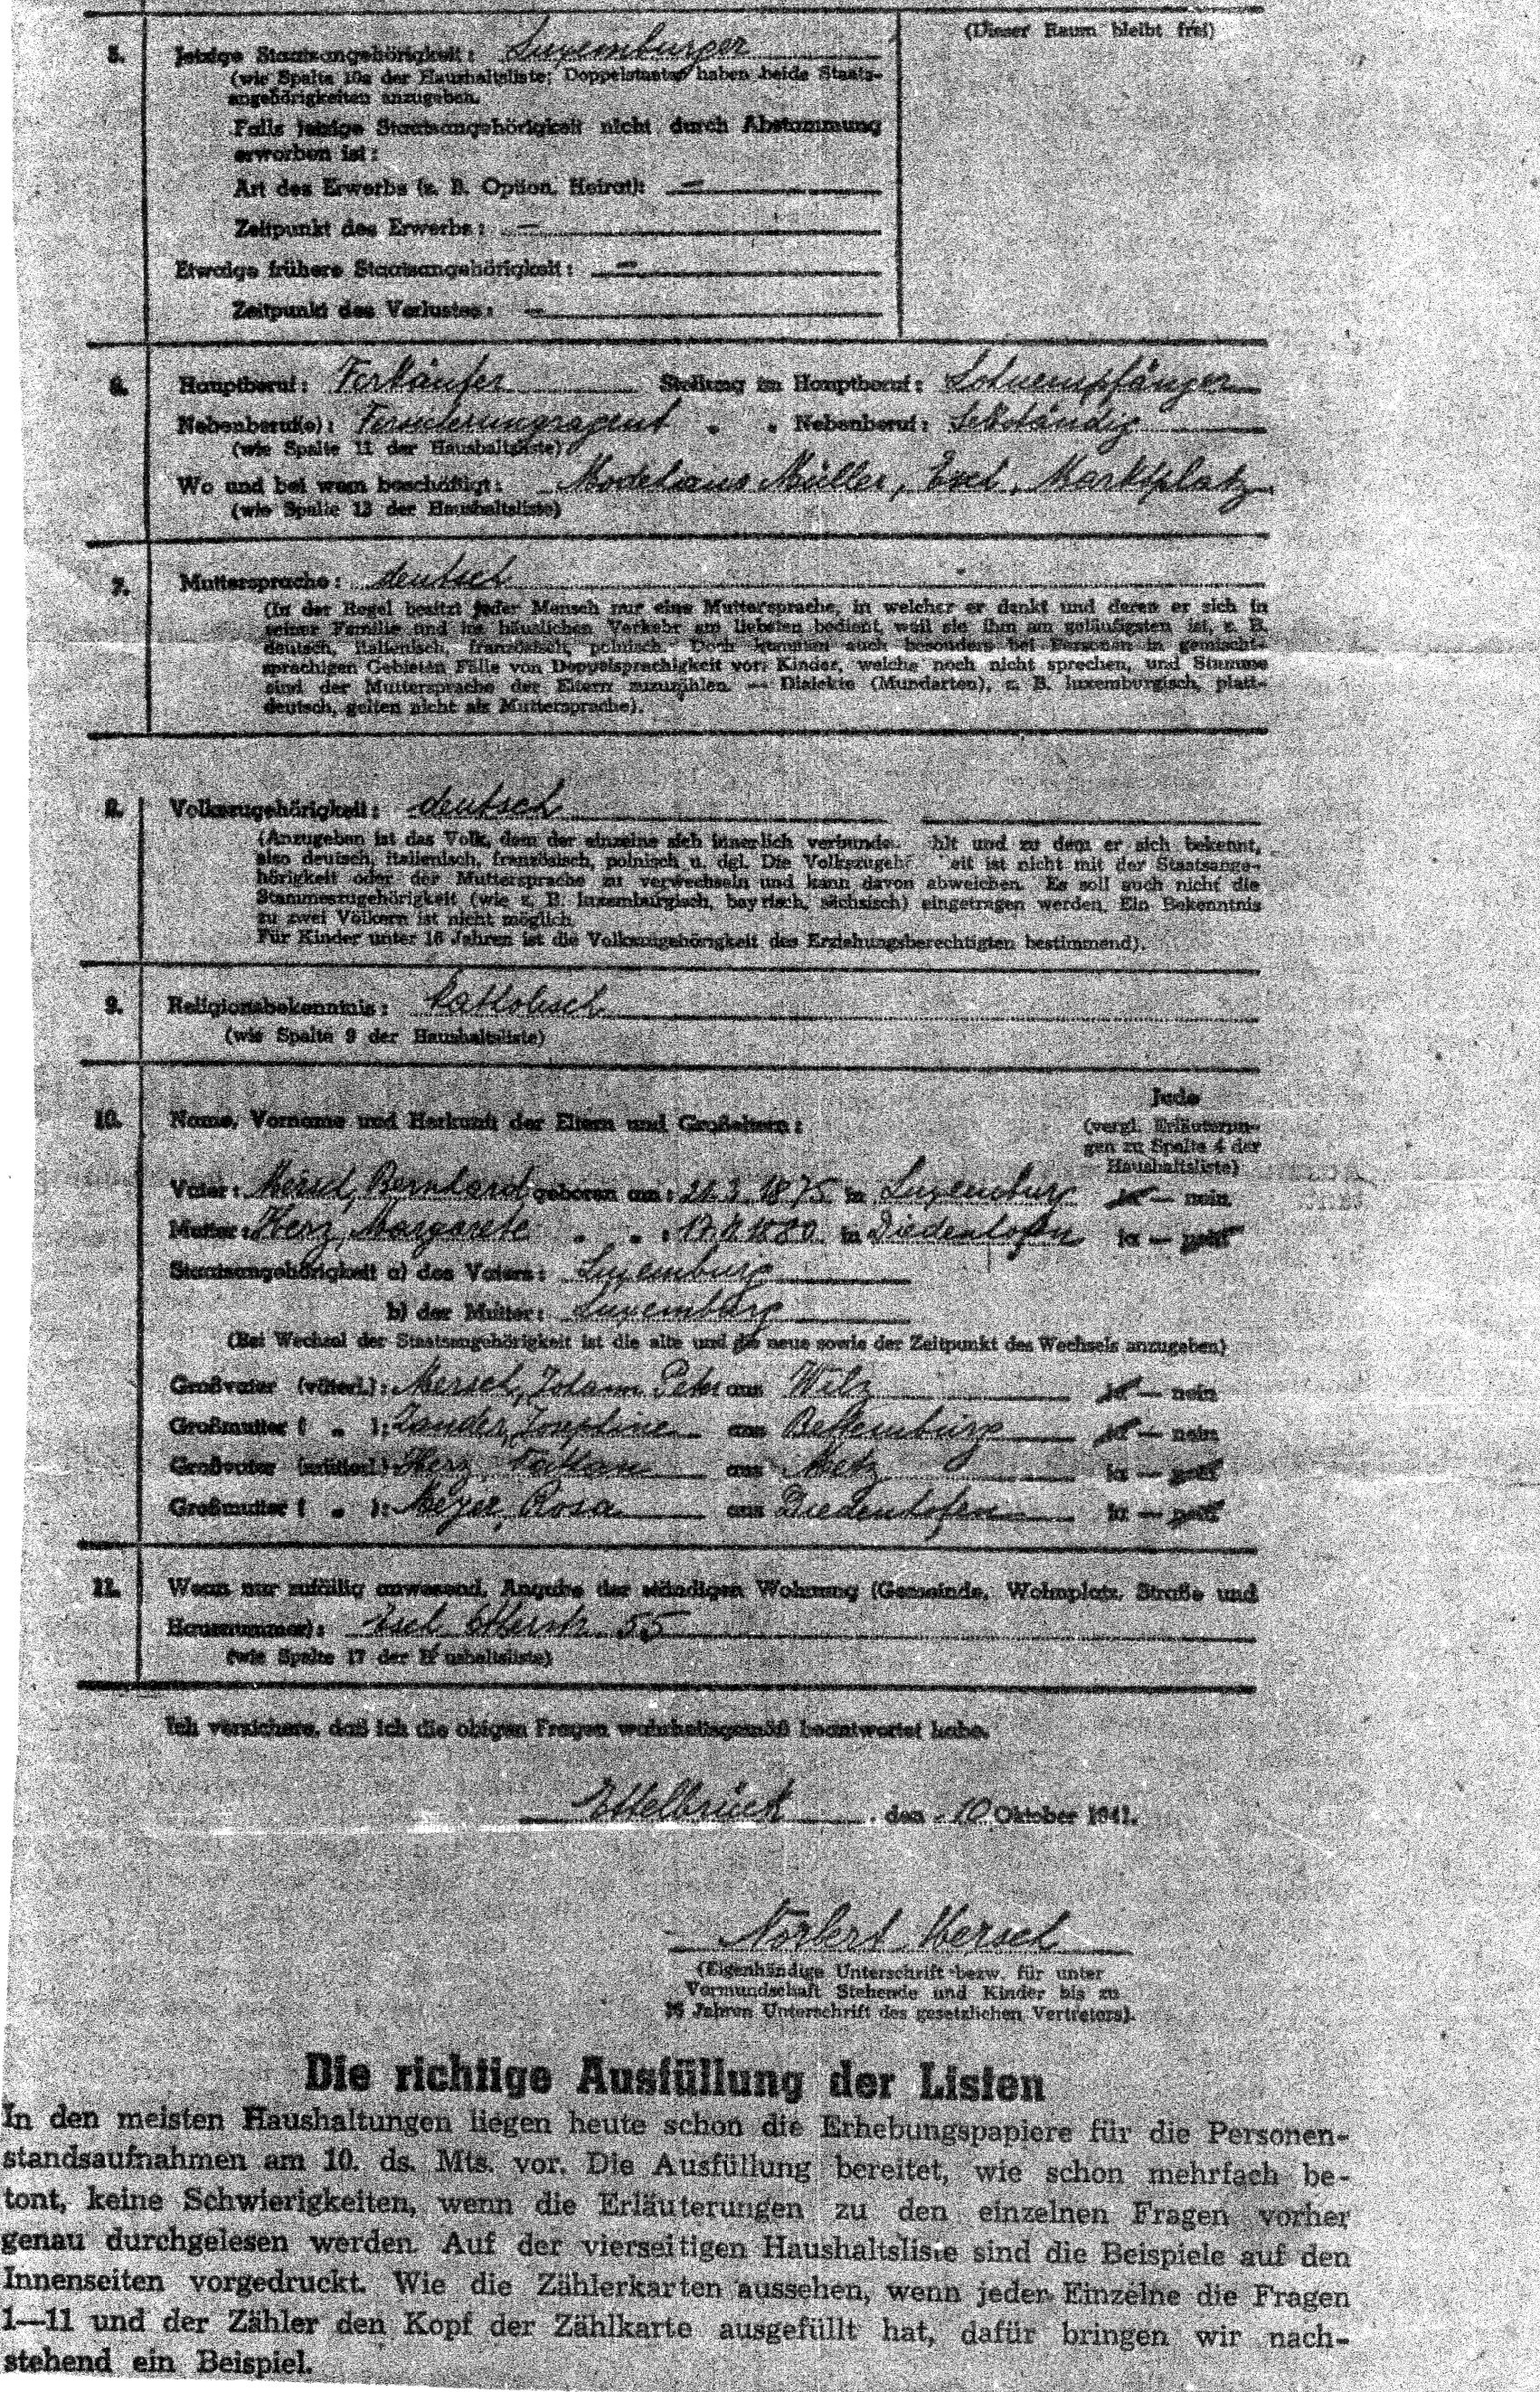 (Dieser Raum bleibt frei)
5. Jetzige Staatsangehörigkeit: Luxemburger
(wie Spalte 10a der Haushaltsliste; Doppelstaater haben beide Staats-
angehörigkeiten anzugeben.
Falls jetzige Staatsangehörigkeit nicht durch Abstammung
erworben ist:
Art des Erwerbs (z. B. Option, Heirat): —
Zeitpunkt des Erwerbs: —
Etwaige frühere Staatsangehörigkeit: —
Zeitpunkt des Verlustes: —
6. Hauptberuf: Verkäufer Stellung im Hauptberuf: Lohnempfänger
Nebenberuf(e): Versicherungsagent „ „ Nebenberuf: Selbständig
(wie Spalte 11 der Haushaltsliste)
Wo und bei wem beschäftigt: Modehaus Müller, Esch, Marktplatz
(wie Spalte 13 der Haushaltsliste)
7. Muttersprache: deutsch
(In der Regel besitzt jeder Mensch nur eine Muttersprache, in welcher er denkt und deren er sich in
seiner Familie und im häuslichen Verkehr am liebsten bedient, weil sie ihm am geläufigsten ist, z. B.
deutsch, italienisch, französisch, polnisch. Doch kommen auch besonders bei Personen in gemischt-
sprachigen Gebieten Fälle von Doppelsprachigkeit vor. Kinder, welche noch nicht sprechen, und Stumme
sind der Muttersprache der Eltern zuzuzählen. — Dialekte (Mundarten), z. B. luxemburgisch, platt-
deutsch, gelten nicht als Muttersprache).
8. Volkszugehörigkeit: deutsch
(Anzugeben ist das Volk, dem der einzelne sich innerlich verbunde hlt und zu dem er sich bekennt,
also deutsch, italienisch, französisch, polnisch u. dgl. Die Volkszugeh eit ist nicht mit der Staatsange-
hörigkeit oder der Muttersprache zu verwechseln und kann davon abweichen. Es soll auch nicht die
Stammeszugehörigkeit (wie z. B. luxemburgisch, bayrisch, sächsisch) eingetragen werden. Ein Bekenntnis
zu zwei Völkern ist nicht möglich
Für Kinder unter 16 Jahren ist die Volkszugehörigkeit des Erziehungsberechtigten bestimmend).
9. Religionsbekenntnis: katholisch
(wie Spalte 9 der Haushaltsliste)
Jude
10. Name, Vorname und Herkunft der Eltern und Großeltern:
(vergl. Erläuterun-
gen zu Spalte 4 der
Haushaltsliste)
Vater: Mersch, Bernhard geboren am: 21.3.1875 in Luxemburg ja — nein
Mutter: Herz, Margarete „ „ : 1880 in Diedenhofen ja — nein
Staatsangehörigkeit a) des Vaters: Luxemburg
b) der Mutter: Luxemburg
(Bei Wechsel der Staatsangehörigkeit ist die alte und die neue sowie der Zeitpunkt des Wechsels anzugeben)
Großvater (väterl.): Mersch, Johann Peter aus Wilz ja — nein
Großmutter ( „ ): Zander, Josephine aus Bettemburg ja — nein
Großvater (mütterl.) Herz, aus Metz ja — nein
Großmutter ( „ ): Meyer, Rosa aus Diedenhofen ja — nein
11. Wenn nur zufällig anwesend, Angabe der ständigen Wohnung (Gemeinde, Wohnplatz, Straße und
Hausnummer): Esch 55
(wie Spalte 17 der H ushaltsliste)
Ich versichere, daß ich die obigen Fragen wahrheitsgemäß beantwortet habe.
Ettelbrück, den 10 Oktober 1941.
Norbert Mersch
(Eigenhändige Unterschrift bezw. für unter
Vormundschaft Stehende und Kinder bis zu
16 Jahren Unterschrift des gesetzlichen Vertreters).
Die richtige Ausfüllung der Listen
In den meisten Haushaltungen liegen heute schon die Erhebungspapiere für die Personen-
standsaufnahmen am 10. ds. Mts. vor. Die Ausfüllung bereitet, wie schon mehrfach be-
tont, keine Schwierigkeiten, wenn die Erläuterungen zu den einzelnen Fragen vorher
genau durchgelesen werden. Auf der vierseitigen Haushaltsliste sind die Beispiele auf den
Innenseiten vorgedruckt. Wie die Zählerkarten aussehen, wenn jeder Einzelne die Fragen
1—11 und der Zähler den Kopf der Zählkarte ausgefüllt hat, dafür bringen wir nach-
stehend ein Beispiel.